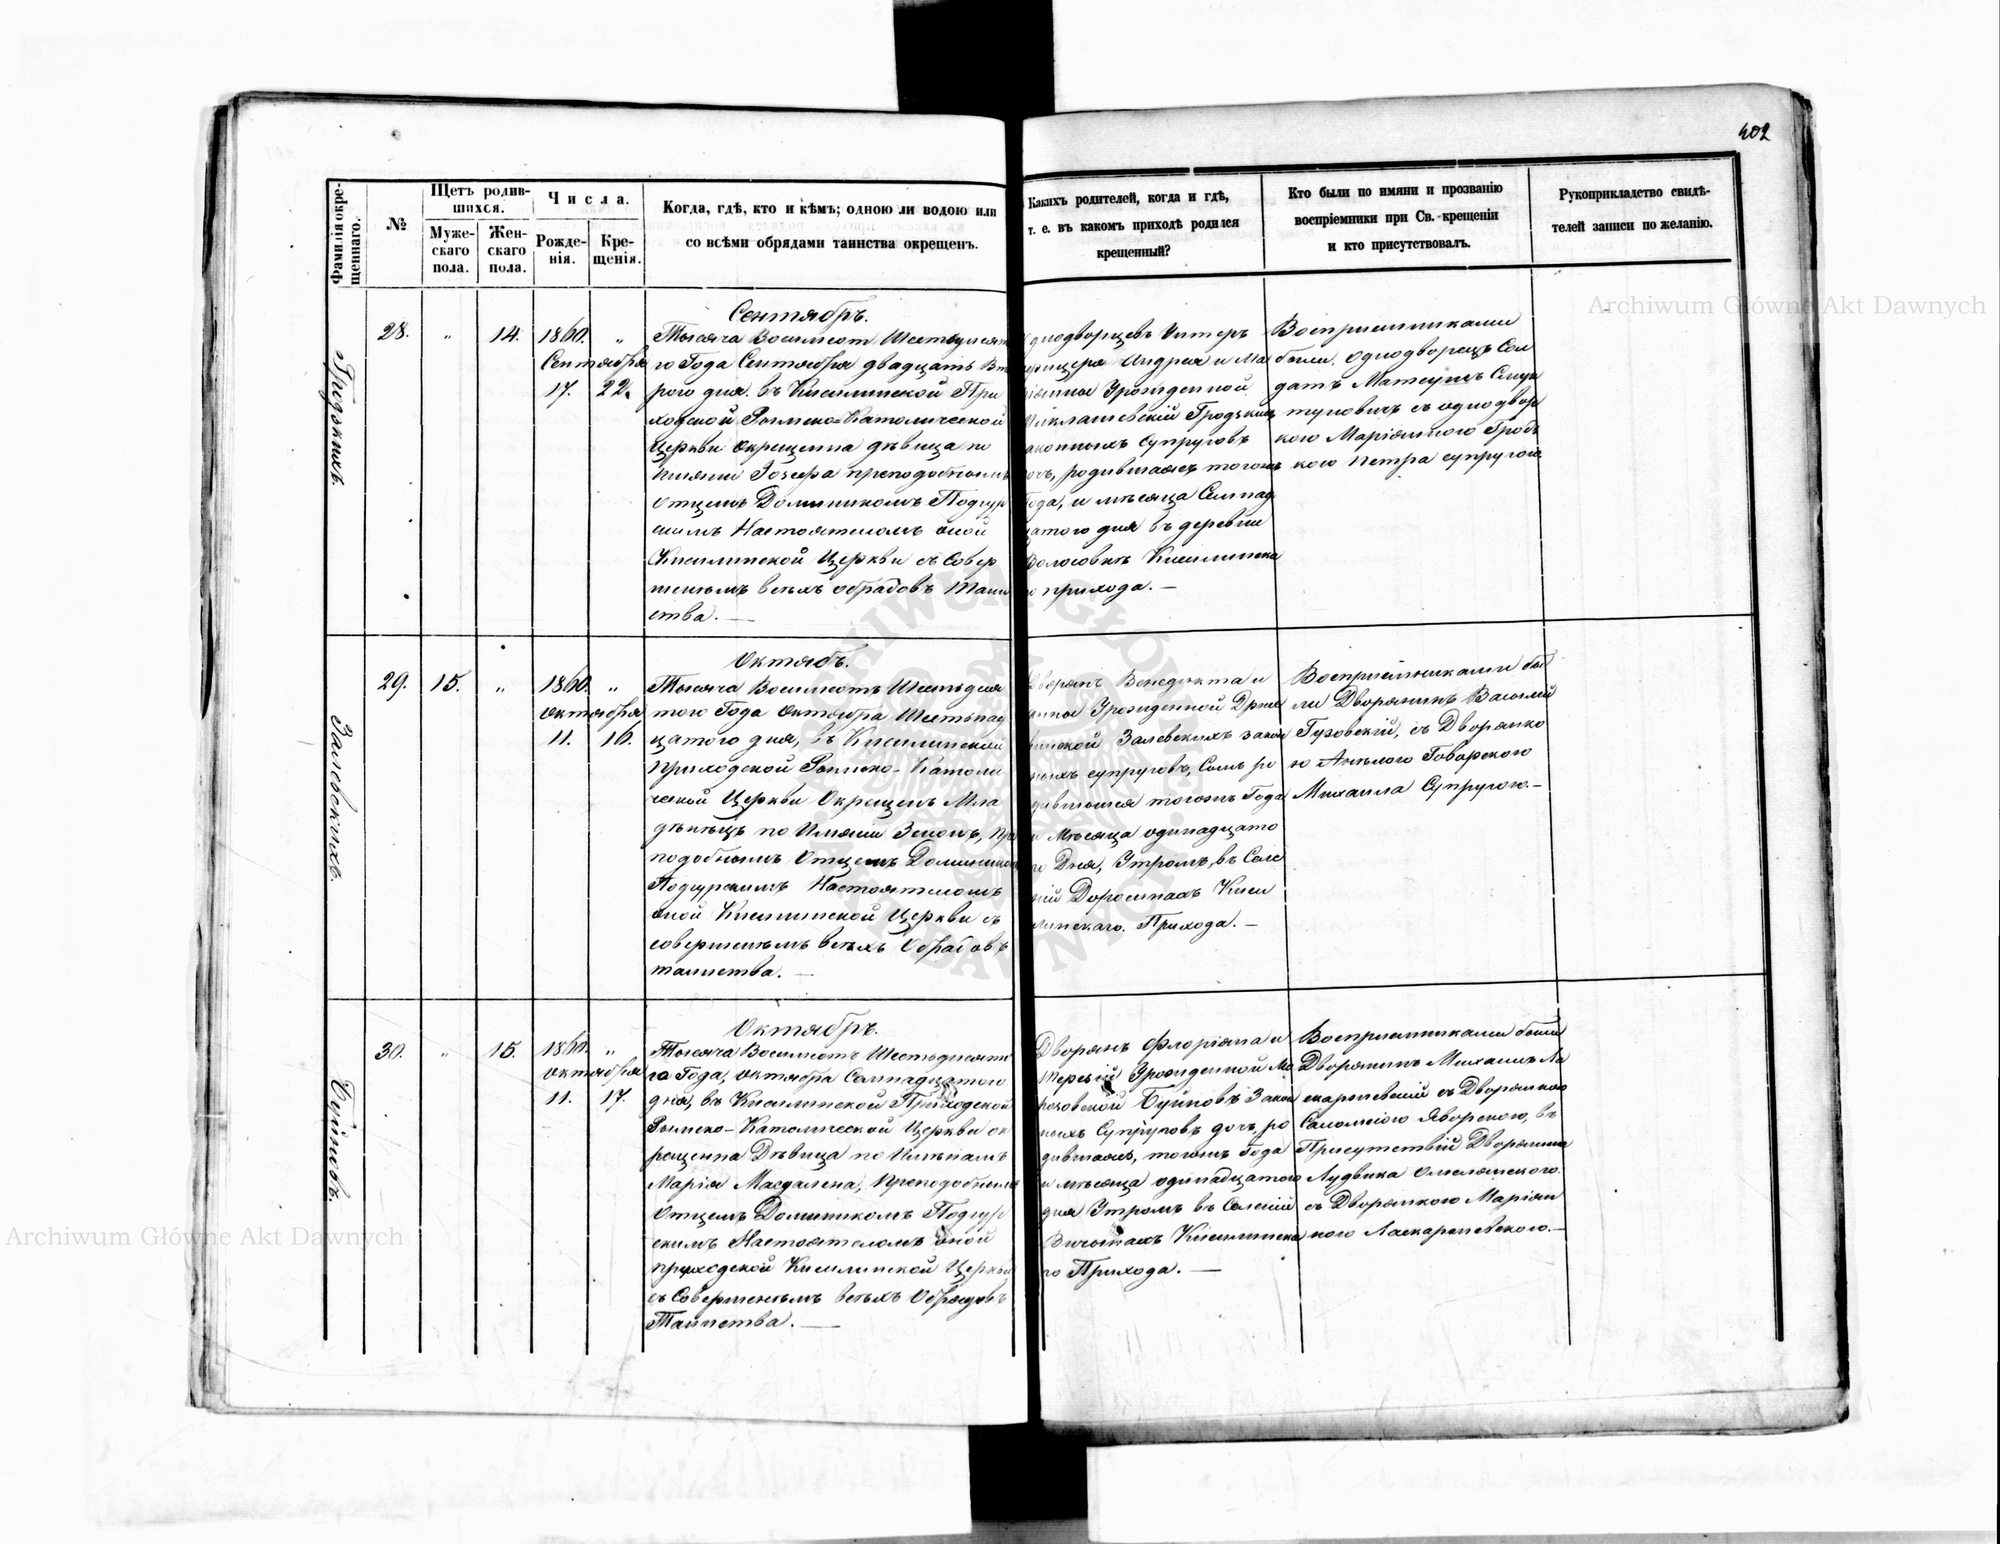 402
Фамилія окре-
щеннаго.
№
Щетъ родив-
шихся.
Муже-
скаго
пола.
Жен-
скаго
пола.
Числа.
Рожде-
нія.
Кре-
щенія.
Когда, гдѣ, кто и кѣмъ; одною ли водою или
со всѣми обрядами таинства окрещенъ.
Какихъ родителей, когда и гдѣ,
т. е. въ какомъ приходѣ родился
крещенный?
Кто были по имяни и прозванію
воспріемники при Св. крещеніи
и кто присутствовалъ.
Рукоприкладство свидѣ-
телей записи по желанію.
28.
"
14.
1860.
"
Сентября
17.
22.
Сентябръ.
Тысяча Восемсот Шестдесят
го Года Сентября двадцать Вто
рого дня. въ Кисилинской При
ходской Римско-Католической
Церкви Окрещенна дѣвица по
имяни Іозефа преподобнымъ
Отцемъ Доминикомъ Подгур
скимъ Настоятелемъ оной
Кисилинской Церкви съ Совер
шеніемъ всѣхъ обрадовъ Таин
ства. —
Однодворцевъ Унтеръ
Офицера Андрея и Ма
ріанны Урожденной
Миклашевскій Гродзких
законныхъ супруговъ
дочь, родившаяся тогожъ
Года, и мѣсяца Семнад
цатого дня въ деревни
Волосовкѣ Кисилинска
го прихода. —
Воспріемниками
были, однодворецъ Сол
датъ Матеушъ
туповичъ съ однодвор
кою Маріянною Гродз
кою Петра супругою
Залевскихъ.
29.
15.
"
1860.
"
Октября
11.
16.
Октябъ.
Тысяча Восемсотъ Шестьдеся
того Года Октября Шестьнад
цатого дня, въ Кисилинской
Приходской Римско-Католи
ческой Церкви Окрещенъ Мла
дѣнѣцъ по Имяни Зенонъ, Пре
подобнымъ Отцемъ Доминикомъ
Подгурскимъ Настоятелемъ
оной Кисилинской Церкви съ
совершеніемъ всѣхъ Обрадовъ
таинства. —
Дворянъ Венедикта и
Анны Урожденной
Залевскихъ закон
ныхъ супруговъ, Сынъ ро
дившійся тогожъ Года
и Мѣсяца одинадцато
го Дня, Утромъ, въ Селе
ній Доросинахъ Киси
линскаго. Прихода. —
Воспріемниками бы
ли Дворянинъ Василій
Гузовскій, съ Дворянко
ю Анелею Говорского
Михаила Супругою. —
Буйновъ.
30.
"
15.
1860.
"
Октября
11.
17.
Октябръ.
Тысяча Восемсотъ Шестьдесято
го Года, Октября Семнадцатого
дня, въ Кисилинской Приходской
Римско-Католической Церкви ок
рещенна Дѣвица по Имѣнамъ
Марія Магдалена, Преподобнымъ
Отцемъ Доминикомъ Подгур
скимъ Настоятелемъ оной
приходской Кисилинской Церкви
съ Совершеніемъ всѣхъ Обрядовъ
Таинства. —
Дворянъ Флоріяна и
Терезій Урожденной Ма
ковской Буйновъ Закон
ныхъ Супруговъ дочь, ро
дившаяся, тогожъ Года
и мѣсяца одинадцатого
дня Утромъ въ Селеній
Кисилинска
го Прихода. —
Воспріемниками были
Дворянинъ Михаилъ Ла
скаржевскій съ Дворянкою
Саломеіою Яворскою, въ
Присутствій Дворянина
Лудвика Омелянского.
съ Дворянкою Маріян
ною Ласкаржевскою. —
Archiwum Główne Akt Dawnych
Archiwum Główne Akt Dawnych